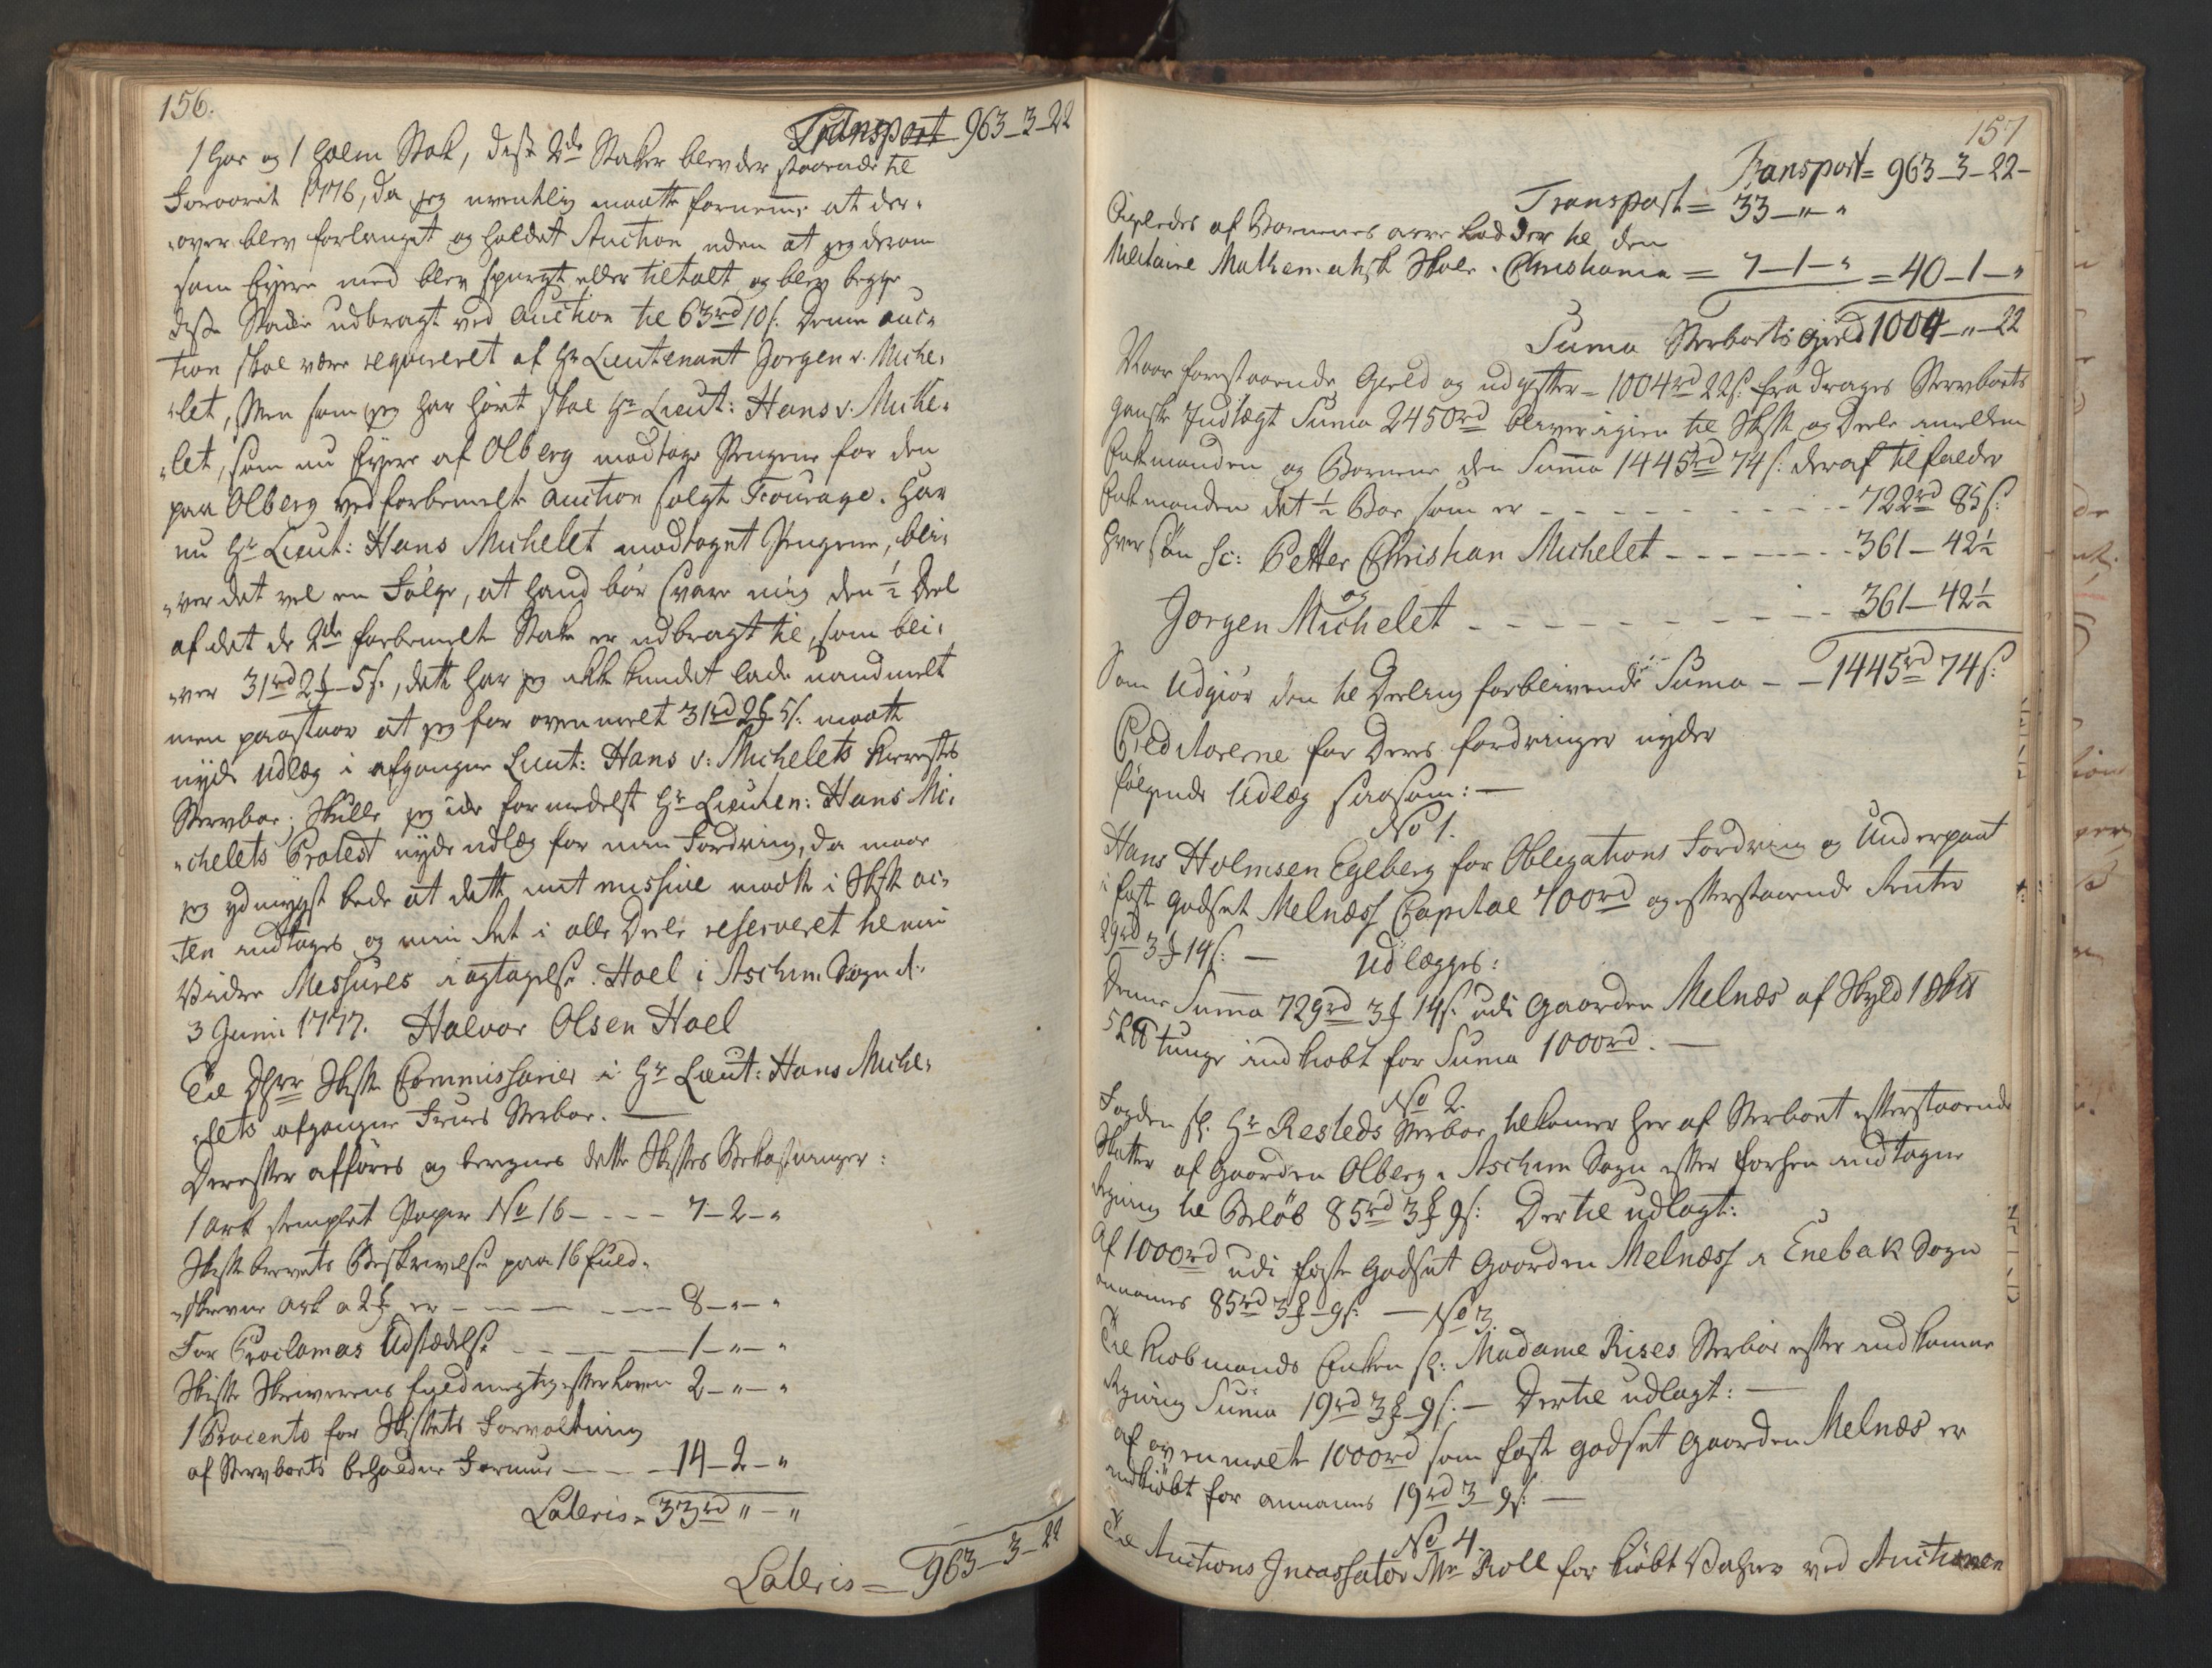 156.
Transport 963-3-22
1 Hør og 1 Halm Stak, disse 2de Staker blev der staaende til
Foraaret 1776, da jeg uventelig maatte fornemme at der-
over blev forlanget og holdet Auction uden at jeg derom
som Eyere med blev spurgt eller tiltalt og blev begge
disse Stake udbragt ved Auction til 63rd 10s. Denne Auc-
tion skal være requireret af Hr Lieutenant Jørgen v. Miche-
let, Men som jeg har hørt skal Hr Lieut: Hans v. Miche-
let, som nu Eyere af Olberg modtage Pengene for den
paa Olberg ved forbemelte Auction solgte Fourage. Har
nu Hr Lieut: Hans Michelet modtaget Pengene, bli-
ver det vel en Følge, at hand bør svare mig den ½ Deel
af det de 2de forbemelte Stake er udbragt til, som bli-
ver 31rd 2ß 5s., dette har jeg ikke kundet lade uandmelt
men paastaar at jeg for ovenmelt 31rd 2ß 5s. maatte
nyde Udlæg i afgangne Lieut: Hans v: Michelets Kierestes
Stervboe; Skulle jeg icke formedelst Hr Lieuten: Hans Mi-
chelets Protest nyde udlæg for min Fordring, da maae
jeg ydmygst bede at dette mit missive maatte i Skifte ac-
ten indtages og min Ret i alle Deele reserveret til min
Videre Messures iagtagelse. Hoel i Aschim Sogn d.
3 Junii 1777. Halvor Olsen Hoel
Til Dhrr Skifte Commissarier i Hr Lieut: Hans Miche-
lets afgangne Frues Sterboe.
Derefter afføres og beregnes dette Skiftes Bekostninger:
1 Ark stemplet Papiir No 16 - - - - 7-2-"
Skifte brevets Beskrivelse paa 16 fuld-
skrevne Ark a 2ß er - - - - 8-"-"
For Proclamas Udstædelse - - - - 1-"-"
Skifte Skriverens fuldmegtig efter Loven 2-"-"
1 Procento for Skiftets Forvaltning
af Stervboets beholdne Formue - - - 14-2-"
Lateris = 33rd "-"
Lateris = 963-3-22
157
Transport = 963-3-22-
Transport = 33-"-"
Ligeledes af Børnenes arve Lodder til den
Militaire Mathematisk Skole i Christiania = 7-1-" = 40-1-"
Suma Sterboets Gield 1004-"-22
Naar forestaaende Gield og udgifter - 1004rd 22s. fra drages Stervboets
ganske Indtægt Suma 2450rd bliver igien til Skifte og Deele imellem
Enkemanden og Børnene den Suma 1445rd 74s. deraf tilfalder
Enkemanden det ½ Boe som er - - - - 722rd 85s.
hver Søn sc: Petter Christian Michelet - - - - 361-42½
og
Jørgen Michelet - - - - 361-42½
Som Udgiør den til Deeling forblivende Suma - - 1445rd 74s.
Creditorerne for Deres fordringer nyder
følgende Udlæg saasom: -
No 1.
Hans Holmsen Egeberg for Obligations Fordring og Underpant
i faste Godset Melnæss Capital 700rd og efterstaaende Renter
29rd 3ß 14s. - Udlægges:
Denne Suma 729rd 3ß 14s. udi Gaarden Melnæs af Skyld 1 Sk℔
5 L℔ tunge indkiøbt for Suma 1000rd. -
No 2.
Fogden sl. Hr Resteds Sterboe tilkomer her af Sterboet efterstaaende
Skatter af Gaarden Olberg i Aschim Sogn efter forhen indtagne
Regning til Beløb 85rd 3ß 9s: Der til udlagt:
Af 1000rd udi faste Godset Gaarden Melnæss i Enebak Sogn
annammes 85rd 3ß 9s. - No 3.
Til Kiøbmands Enken sl: Madame Rises Sterboe efter indkomne
Regning Suma 19rd 3ß 9s. - Dertil udlagt: -
af ovenmelte 1000rd som faste godset Gaarden Melnæs er
indkiøbt for annammes 19rd 3-9s. -
No 4.
Til Auctions Incassator Mr Roll for kiøbt Vahre ved Auctionen